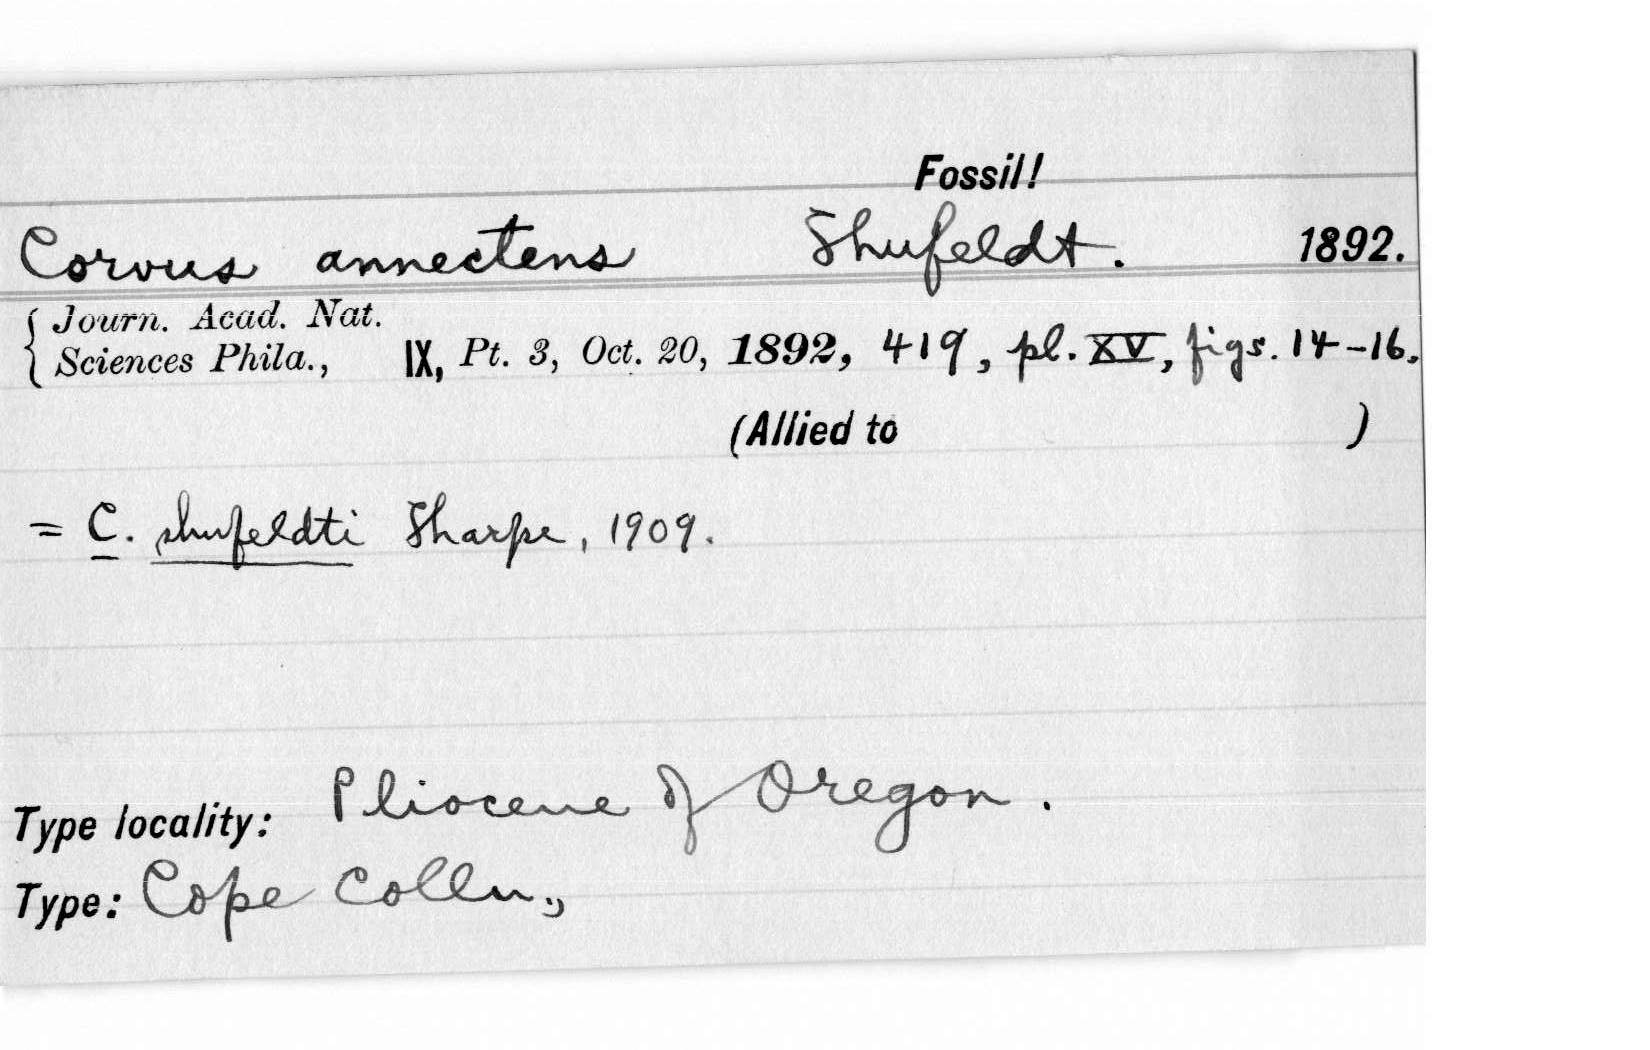 Fossil!
Corvus annectens Shufeldt. 1892.
{ Journ. Acad. Nat.
Sciences Phila., IX, Pt. 3, Oct. 20, 1892, 419, pl. XV, figs. 14-16.
(Allied to )
= C. shufeldti Sharpe, 1909.
Type locality: Pliocene of Oregon.
Type: Cope Colln.,